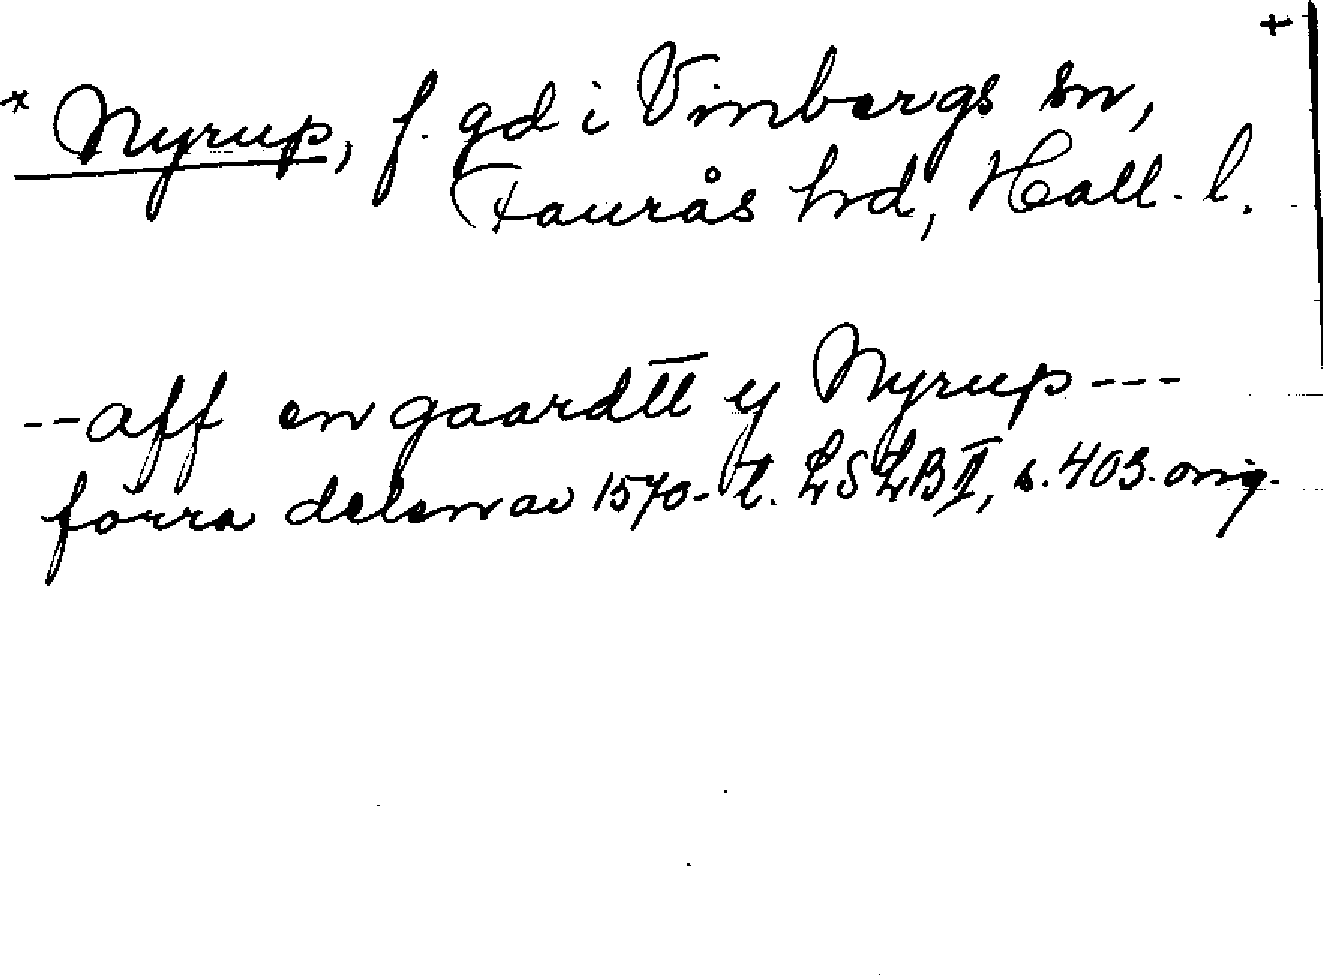 +
* Nyrup, f. gd i Vinbergs sn,
Faurås hd, Hall. l.
--aff en gaardtt y Nyrup---
förra delen av 1570-t. LSLB II, s. 403. orig.